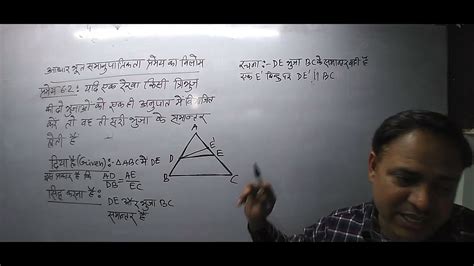 आधार भूत समानुपातिकता प्रमेय का विलोम
प्रमेय 6.2: यदि एक रेखा किसी त्रिभुज
की दो भुजाओं को एक ही अनुपात में विभाजित
करे तो वह तीसरी भुजा के समान्तर
होती है
दिया है (Given):- △ABC में DE
इस प्रकार है कि AD/DB = AE/EC
सिद्ध करना है:- DE और भुजा BC
समान्तर है
रचना:- DE भुजा BC के समान्तर नहीं है
एक E' बिन्दु पर DE' || BC
A
E'
D
E
B
C